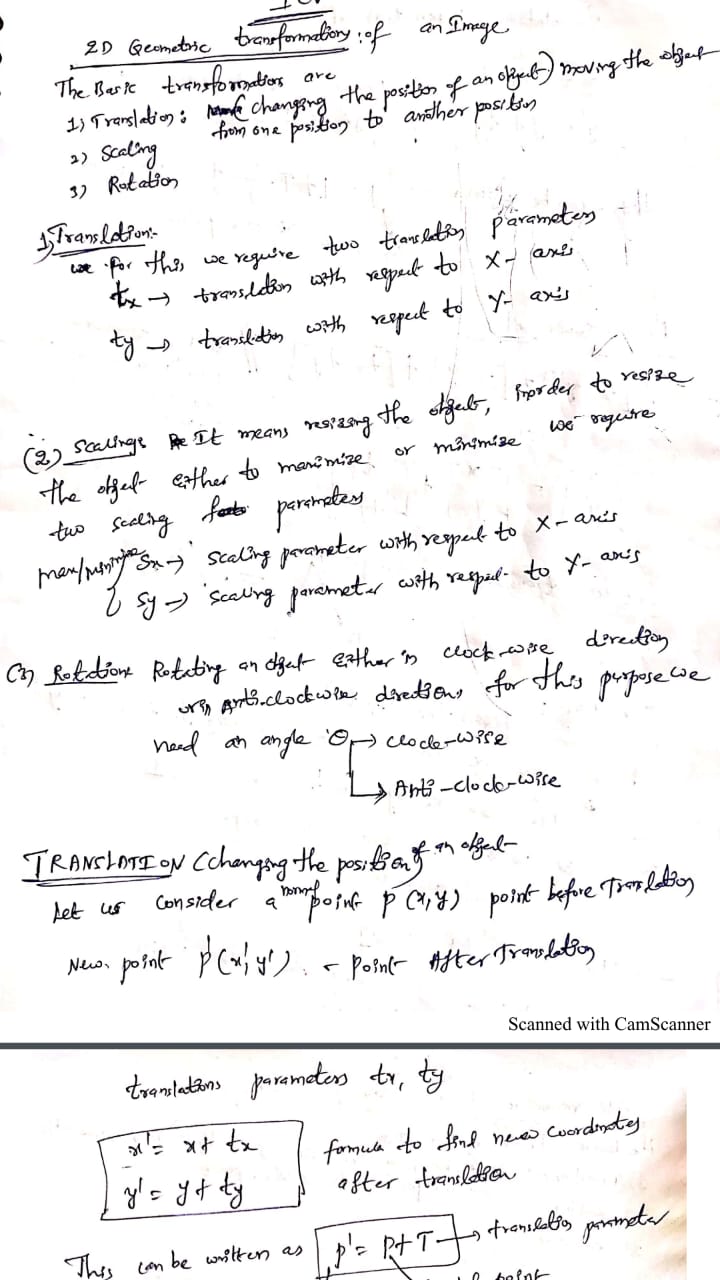 2D Geometric transformations of an Image
The Basic transformations are
1) Translation: (changing the position of an object) moving the object
from one position to another position
2) Scaling
3) Rotation
1) Translation:-
we for this we require two translation parameters
tx → translation with respect to X- axis
ty → translation with respect to Y- axis
(2) Scaling: It means resizing the object, inorder to resize
the object either to maximize or minimize we require
two scaling parameters
max/minimize Sx → scaling parameter with respect to X-axis
Sy → scaling parameter with respect to Y-axis
(3) Rotation: Rotating an object either in clock-wise direction
or in Anti-clockwise direction, for this purpose we
need an angle θ → clock-wise
→ Anti-clock-wise
TRANSLATION (changing the position of an object
Let us consider a normal point P(x,y) point before Translation
New point P'(x',y') - Point After Translation
Scanned with CamScanner
translations parameters tx, ty
x' = x + tx formula to find new coordinates
y' = y + ty after translation
This can be written as P' = P + T → translation parameter
point